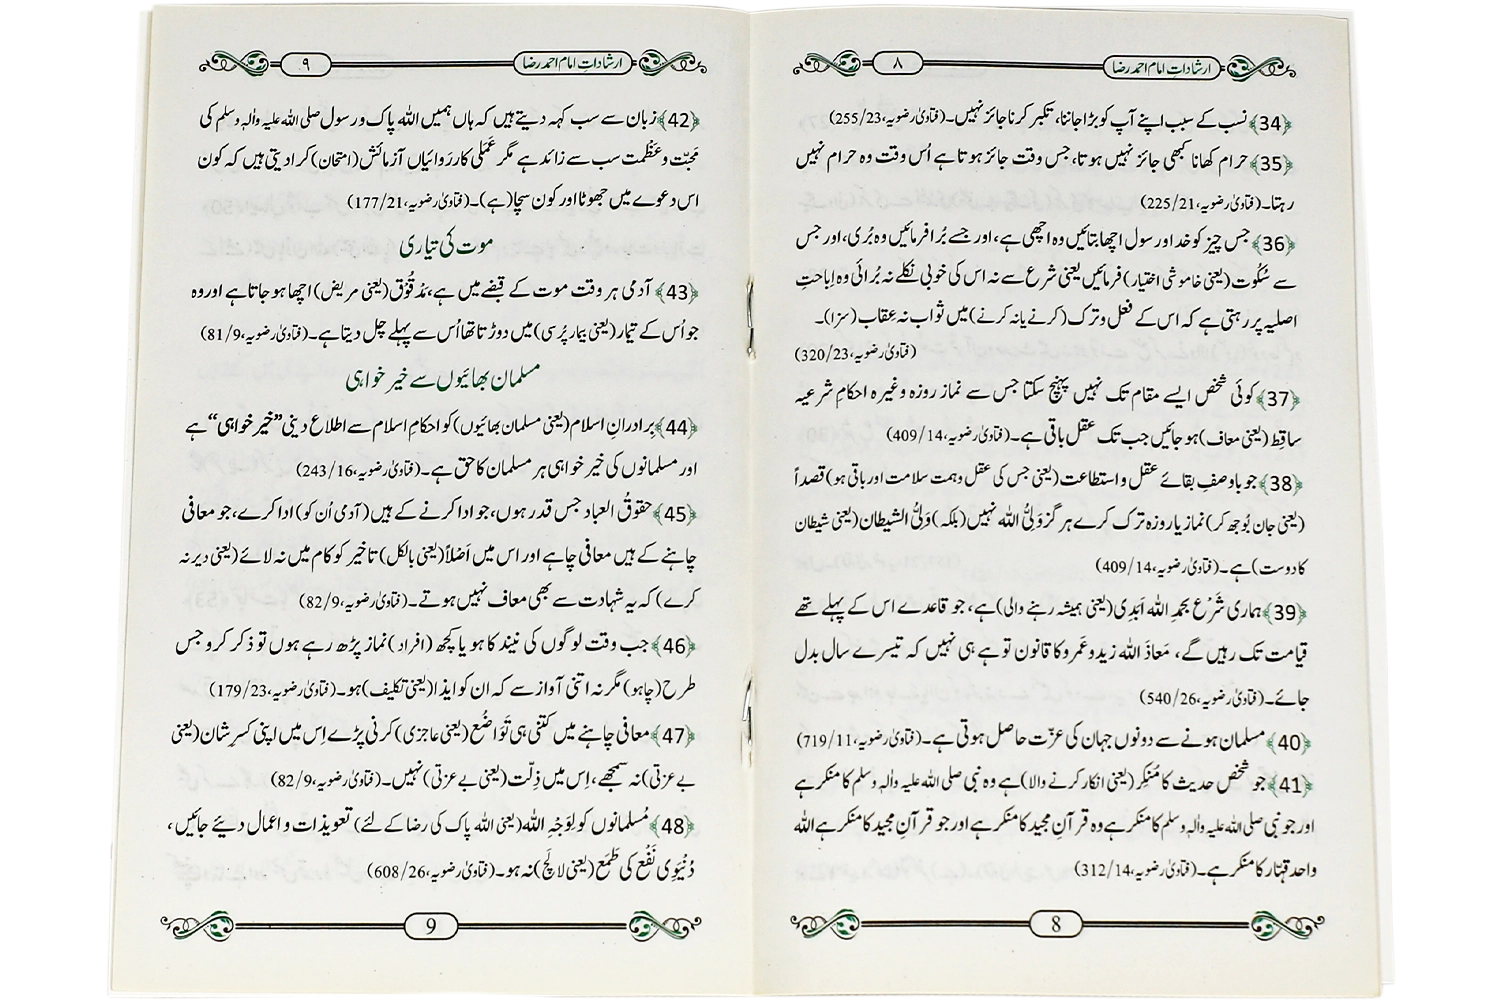 ارشاداتِ امام احمد رضا
۸
﴿34﴾ نسب کے سبب اپنے آپ کو بڑا جاننا، تکبر کرنا جائز نہیں۔ (فتاویٰ رضویہ،255/23)
﴿35﴾ حرام کھانا کبھی جائز نہیں ہوتا، جس وقت جائز ہوتا ہے اُس وقت وہ حرام نہیں
رہتا۔ (فتاویٰ رضویہ،225/21)
﴿36﴾ جس چیز کو خدا و رسول اچھا بتائیں وہ اچھی ہے، اور جسے بُرا فرمائیں وہ بُری، اور جس
سے سُکُوت (یعنی خاموشی اختیار) فرمائیں یعنی شرع سے نہ اس کی خوبی نکلے نہ بُرائی وہ اِباحتِ
اصلیہ پر رہتی ہے کہ اس کے فعل و ترک (کرنے یا نہ کرنے) میں ثواب نہ عِقاب (سزا)۔
(فتاویٰ رضویہ،320/23)
﴿37﴾ کوئی شخص ایسے مقام تک نہیں پہنچ سکتا جس سے نماز روزہ وغیرہ احکامِ شرعیہ
ساقِط (یعنی معاف) ہو جائیں جب تک عقل باقی ہے۔ (فتاویٰ رضویہ،409/14)
﴿38﴾ جو باوصفِ بقائے عقل و استطاعت (یعنی جس کی عقل و ہمت سلامت اور باقی ہو) قصداً
(یعنی جان بُوجھ کر) نماز یا روزہ ترک کرے ہر گز وَلِیُّ اللہ نہیں (بلکہ) وَلِیُّ الشیطان (یعنی شیطان
کا دوست) ہے۔ (فتاویٰ رضویہ،409/14)
﴿39﴾ ہماری شَرْع بحمدِ اللہ اَبَدِی (یعنی ہمیشہ رہنے والی) ہے، جو قاعدے اس کے پہلے تھے
قیامت تک رہیں گے، مَعاذَ اللہ زید و عَمرو کا قانون تو ہے ہی نہیں کہ تیسرے سال بدل
جائے۔ (فتاویٰ رضویہ،540/26)
﴿40﴾ مسلمان ہونے سے دونوں جہان کی عزّت حاصل ہوتی ہے۔ (فتاویٰ رضویہ،719/11)
﴿41﴾ جو شخص حدیث کا مُنکِر (یعنی انکار کرنے والا) ہے وہ نبی صلی اللہ علیہ واٰلہٖ وسلم کا منکر ہے
اور جو نبی صلی اللہ علیہ واٰلہٖ وسلم کا منکر ہے وہ قرآنِ مجید کا منکر ہے اور جو قرآنِ مجید کا منکر ہے اللہ
واحد قہّار کا منکر ہے۔ (فتاویٰ رضویہ،312/14)
8
ارشاداتِ امام احمد رضا
۹
﴿42﴾ زبان سے سب کہہ دیتے ہیں کہ ہاں ہمیں اللہ پاک و رسول صلی اللہ علیہ واٰلہٖ وسلم کی
مَحبّت و عَظْمت سب سے زائد ہے مگر عَمَلی کارروائیاں آزمائش (امتحان) کرا دیتی ہیں کہ کون
اس دعوے میں جھوٹا اور کون سچا (ہے)۔ (فتاویٰ رضویہ،177/21)
موت کی تیاری
﴿43﴾ آدمی ہر وقت موت کے قبضے میں ہے، مَدْقُوْق (یعنی مریض) اچھا ہو جاتا ہے اور وہ
جو اُس کے تیمار (یعنی بیمار پُرسی) میں دوڑتا تھا اُس سے پہلے چل دیتا ہے۔ (فتاویٰ رضویہ،81/9)
مسلمان بھائیوں سے خیر خواہی
﴿44﴾ بِرادرانِ اسلام (یعنی مسلمان بھائیوں) کو احکامِ اسلام سے اطلاع دینی "خیر خواہی" ہے
اور مسلمانوں کی خیر خواہی ہر مسلمان کا حق ہے۔ (فتاویٰ رضویہ،243/16)
﴿45﴾ حقوقُ العباد جس قدر ہوں، جو ادا کرنے کے ہیں (آدمی اُن کو) ادا کرے، جو معافی
چاہنے کے ہیں معافی چاہے اور اس میں اَصْلاً (یعنی بالکل) تاخیر کو کام میں نہ لائے (یعنی دیر نہ
کرے) کہ یہ شہادت سے بھی معاف نہیں ہوتے۔ (فتاویٰ رضویہ،82/9)
﴿46﴾ جب وقت لوگوں کی نیند کا ہو یا کچھ (افراد) نماز پڑھ رہے ہوں تو ذکر کرو جس
طرح (چاہو) مگر نہ اتنی آواز سے کہ ان کو ایذا (یعنی تکلیف) ہو۔ (فتاویٰ رضویہ،179/23)
﴿47﴾ معافی چاہنے میں کتنی ہی تَوَاضُع (یعنی عاجزی) کرنی پڑے اِس میں اپنی کسرِ شان (یعنی
بے عزتی) نہ سمجھے، اِس میں ذِلّت (یعنی بے عزتی) نہیں۔ (فتاویٰ رضویہ،82/9)
﴿48﴾ مُسلمانوں کو لِوَجْہِ اللہ (یعنی اللہ پاک کی رضا کے لئے) تعویذات و اعمال دیئے جائیں،
دُنْیَوِی نَفْع کی طَمَع (یعنی لالچ) نہ ہو۔ (فتاویٰ رضویہ،608/26)
9